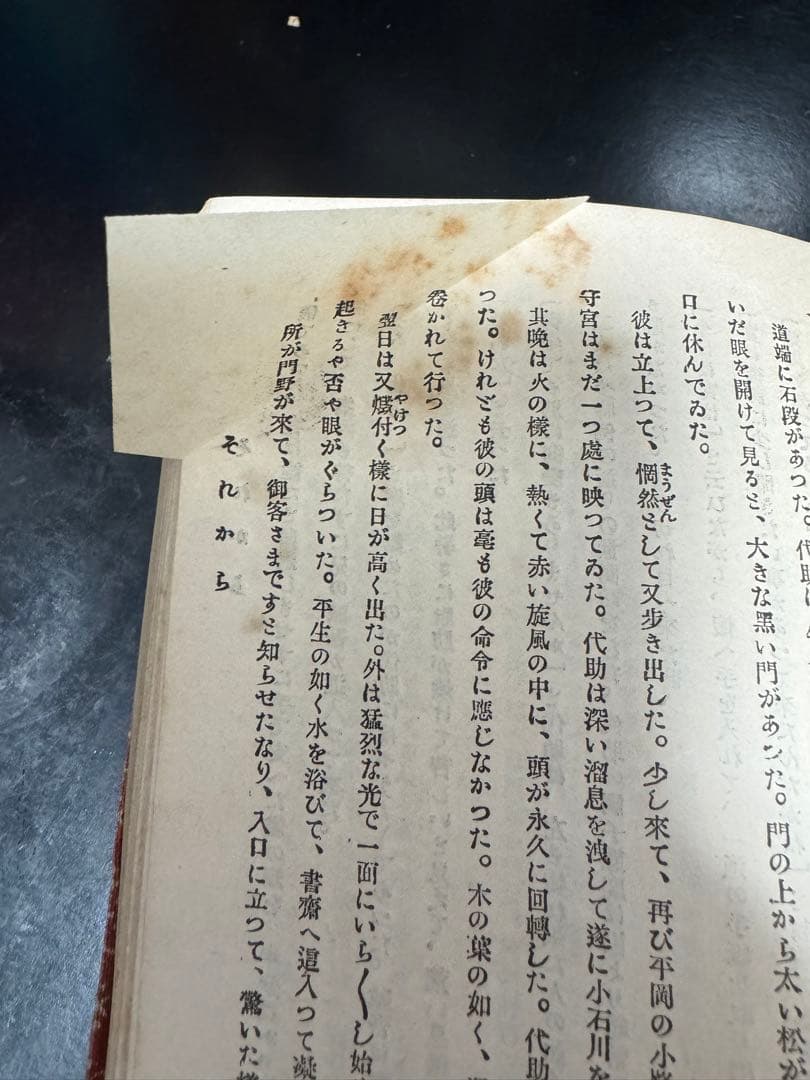 道端に石段があつた。代助は
いだ眼を開けて見ると、大きな黒い門があつた。門の上から太い松が
口に休んでゐた。
彼は立上つて、惘然として又歩き出した。少し來て、再び平岡の小路
まうぜん
守宮はまだ一つ處に映つてゐた。代助は深い溜息を洩して遂に小石川を
其晩は火の樣に、熱くて赤い旋風の中に、頭が永久に回轉した。代助
つた。けれども彼の頭は毫も彼の命令に應じなかつた。木の葉の如く、
卷かれて行つた。
翌日は又燬付く樣に日が高く出た。外は猛烈な光で一面にいら〱し始
やけつ
起きるや否や眼がぐらついた。平生の如く水を浴びて、書齋へ這入つて凝
所が門野が來て、御客さまですと知らせたなり、入口に立つて、驚いた樣
それから